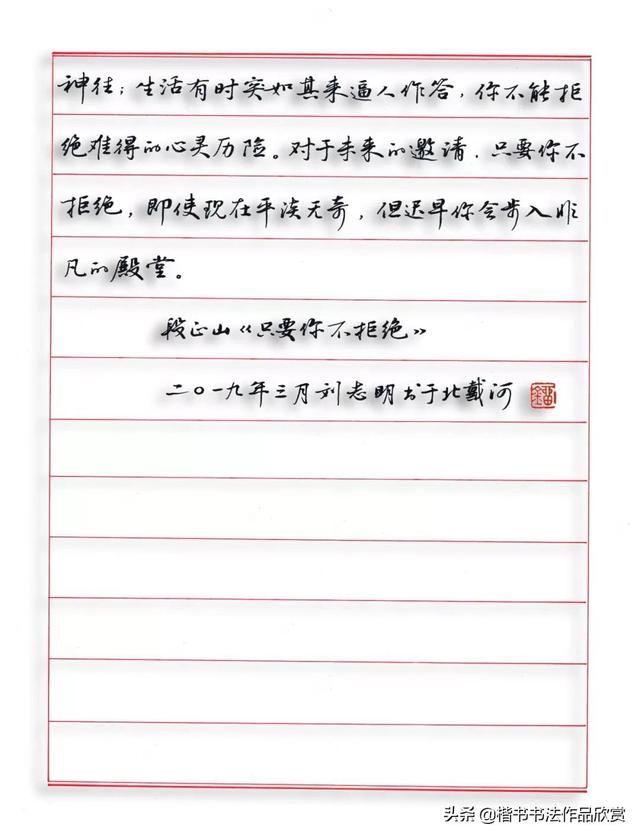 神往；生活有时突如其来逼人作答，你不能拒
绝难得的心灵历险。对于未来的邀请，只要你不
拒绝，即使现在平淡无奇，但迟早你会步入非
凡的殿堂。
段正山《只要你不拒绝》
二〇一九年三月刘志明书于北戴河
头条@楷书书法作品欣赏